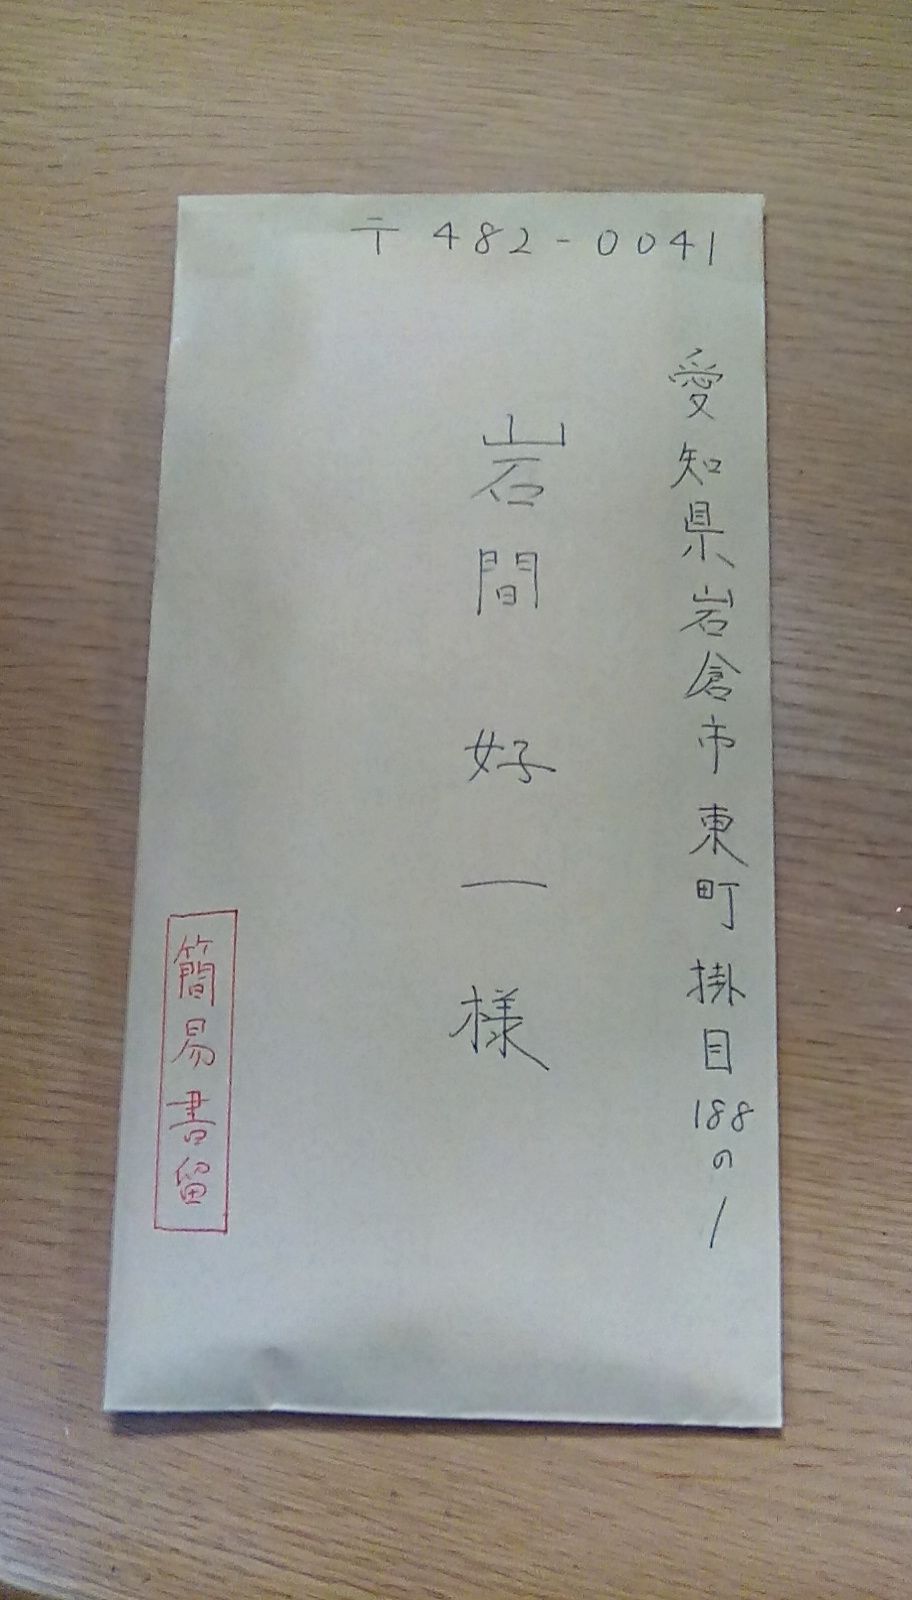 〒482-0041
愛知県岩倉市東町掛目188の1
岩間好一様
簡易書留